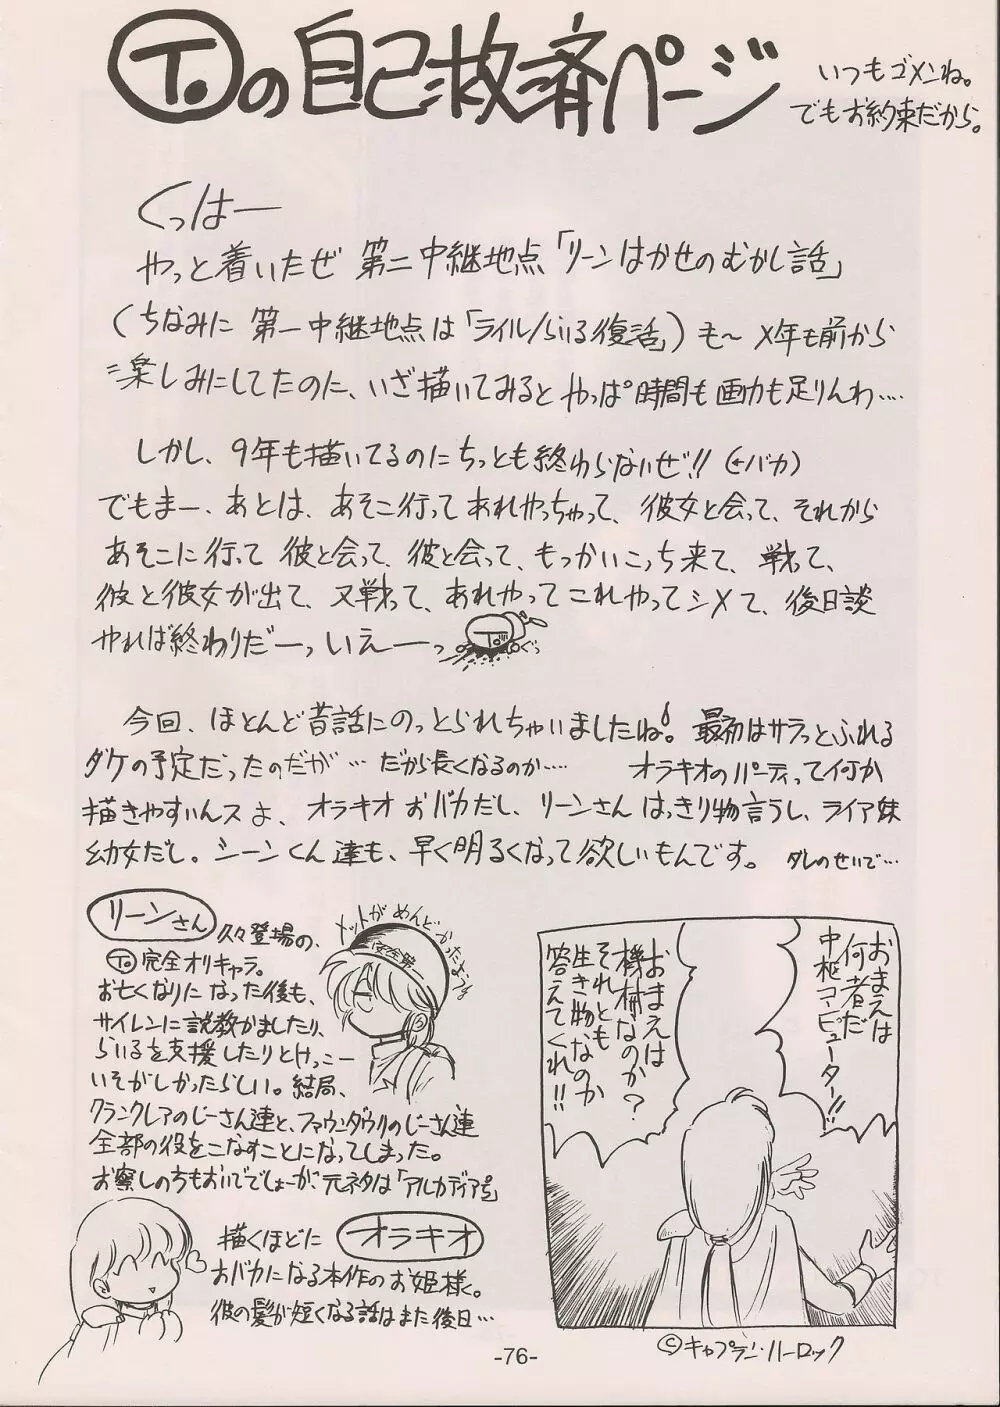 T.の自己救済ページ
いつもゴメンね。
でもお約束だから。
くっはー
やっと着いたぜ 第二中継地点「リーンはかせのむかし話」
(ちなみに 第一中継地点は「ライル/らいる復活」)も〜メ年も前から
楽しみにしてたのに、いざ描いてみると やっぱ時間も画力も足りんわ‥‥
しかし、9年も描いてるのにちっとも終わらないぜ!!(←バカ)
でもまー、あとは、あそこ行ってあれやっちゃって、彼女と会って、それから
あそこに行って 彼と会って、彼と会って、もっかいこっち来て、戦って、
彼と彼女が出て、又戦って、あれやってこれやってシメて、後日談
やれば終わりだーっ いえーーっ
T.
ぐぅ
今回、ほとんど昔話にのっとられちゃいましたね。最初はサラっとふれる
ダケの予定だったのだが… だから長くなるのか‥‥ オラキオのパーティって何か
描きやすいんスよ、オラキオおバカだし、リーンさんはっきり物言うし、ライア妹
幼女だし。シーンくん達も、早く明るくなって欲しいもんです。 ダレのせいで…
リーンさん
久々登場の、
T.完全オリキャラ。
お亡くなりになった後も、
サイレンに説教かましたり、
らいるを支援したりとけっこー
いそがしかったらしい。結局、
クランクレアのじーさん達と、ファウンダウリのじーさん達
全部の役をこなすことになってしまった。
お察しの方もおいででしょーが、元ネタは「アルカディア号」
メットがめんどかったようだ
安全第一
描くほどに
オラキオ
おバカになる本作のお姫様。
彼の髪が短くなる話はまた後日…
おまえは
何者だ
中枢コンピューター!!
おまえは
機械なのか?
それとも
生き物なのか
答えてくれ!!
©キャプテン・ハーロック
-76-